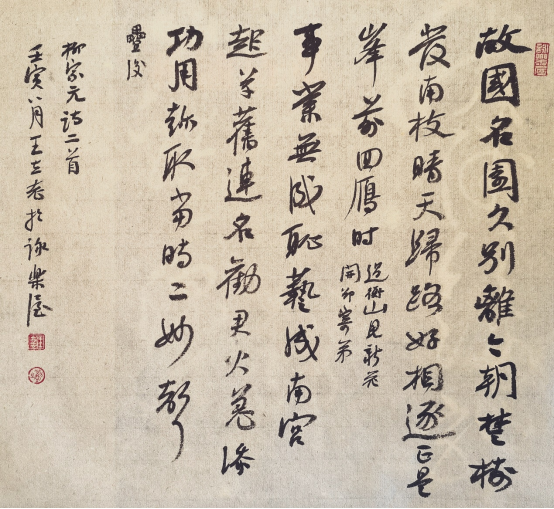 故國名園久別離今朝楚樹
發南枝晴天歸路好相逐正是
峯前回鴈時
過衡山見新花
開却寄弟
事業無成恥藝成南宮
起草舊連名勸君火急添
功用趂取當時二妙聲
疊後
柳宗元詩二首
壬寅八月王立志於詠樂